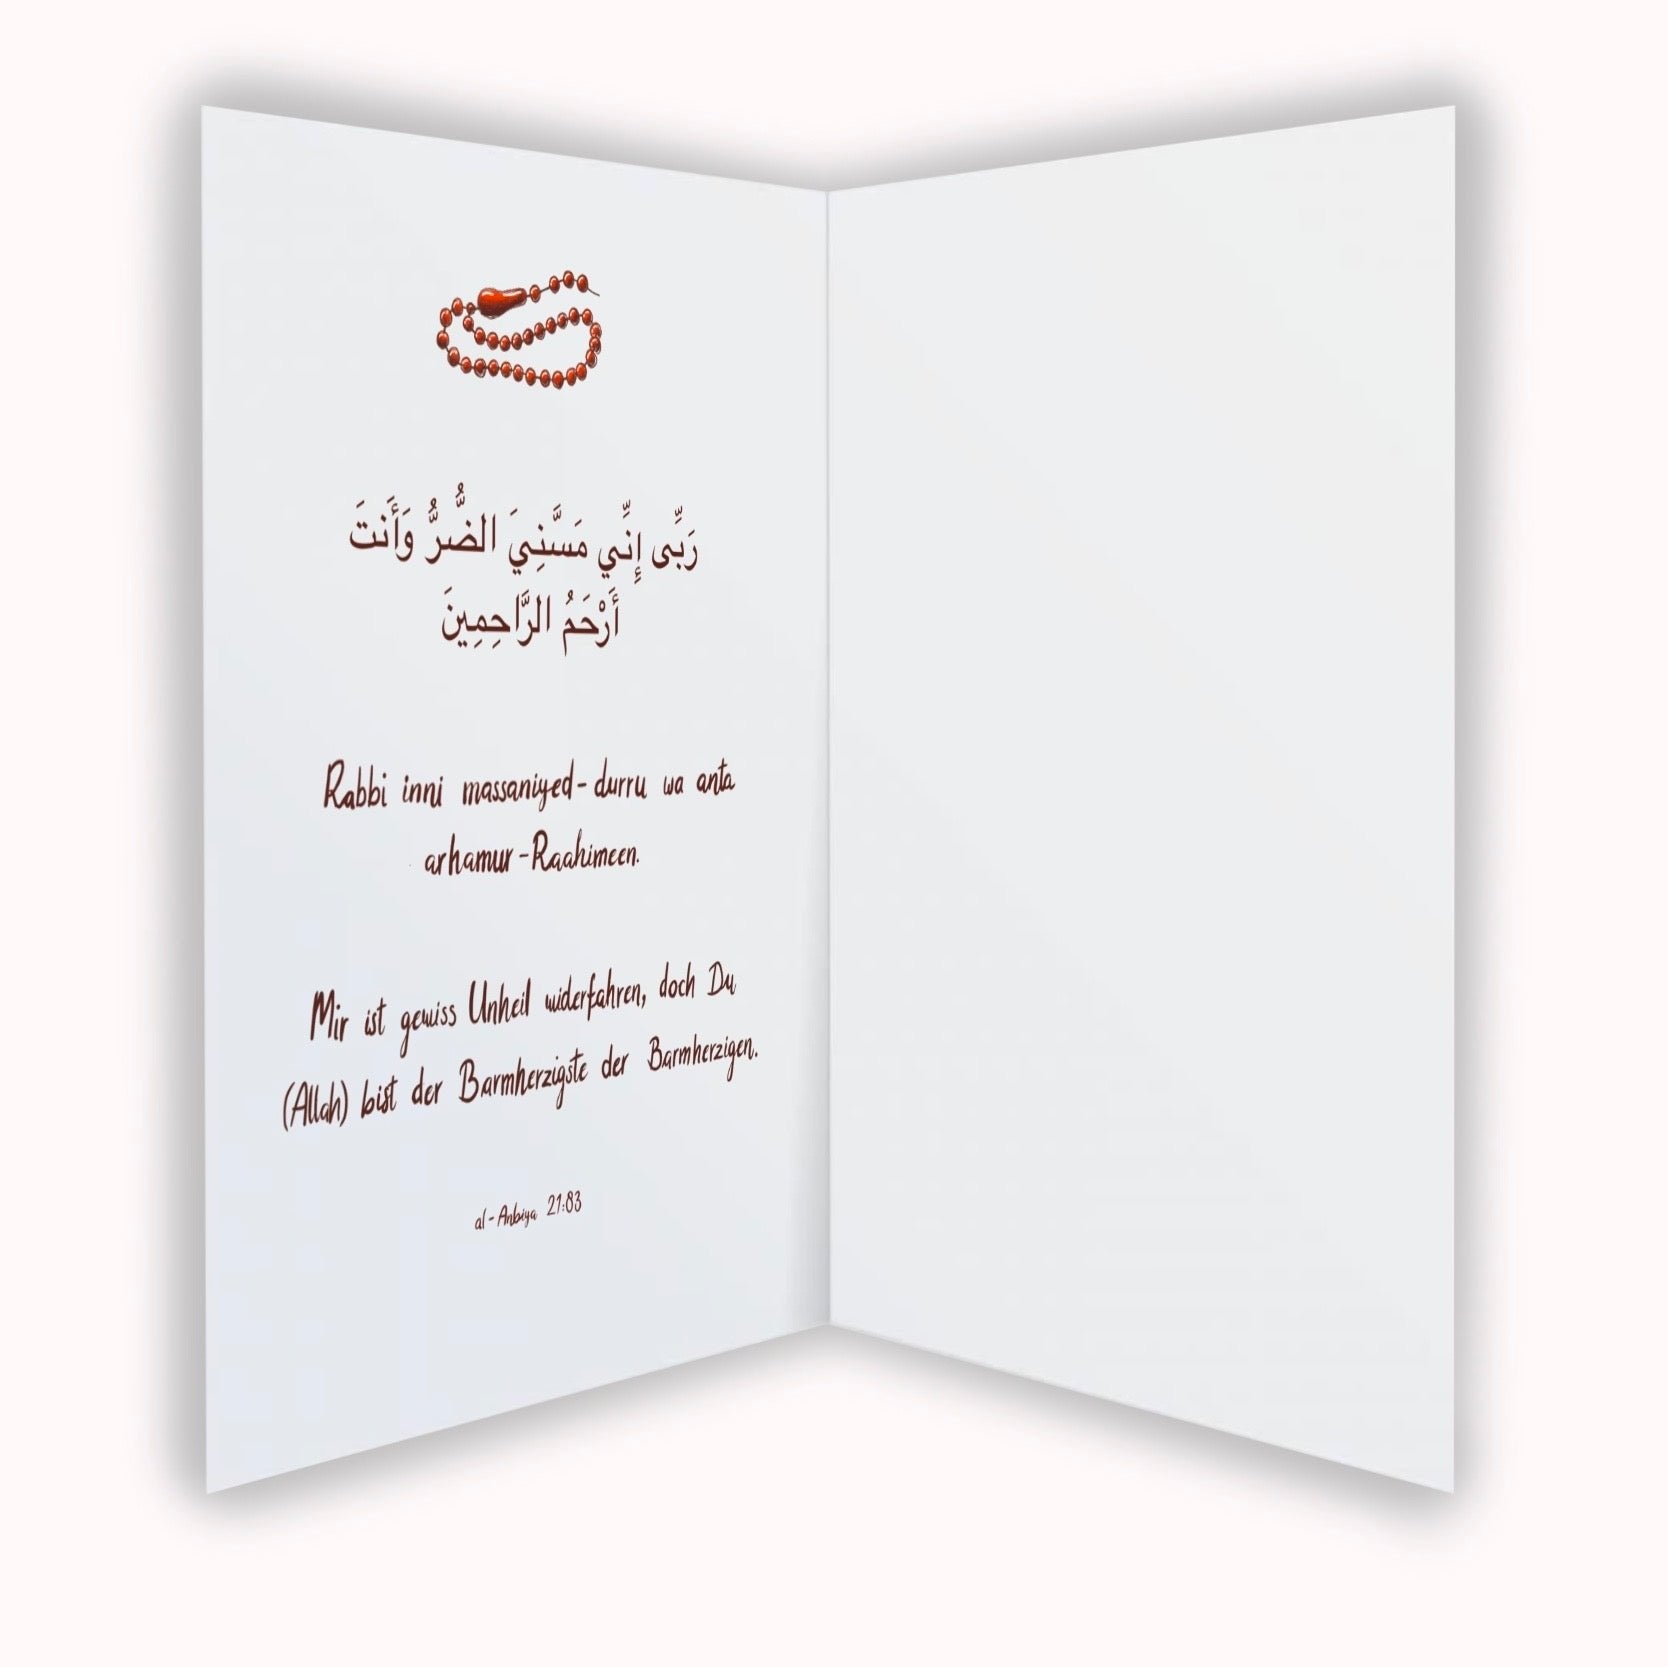 رَبِّى إِنِّي مَسَّنِيَ الضُّرُّ وَأَنتَ
أَرْحَمُ الرَّاحِمِينَ
Rabbi inni massaniyed-durru wa anta
arhamur-Raahimeen.
Mir ist gewiss Unheil widerfahren, doch Du
(Allah) bist der Barmherzigste der Barmherzigen.
al-Anbiya 21:83